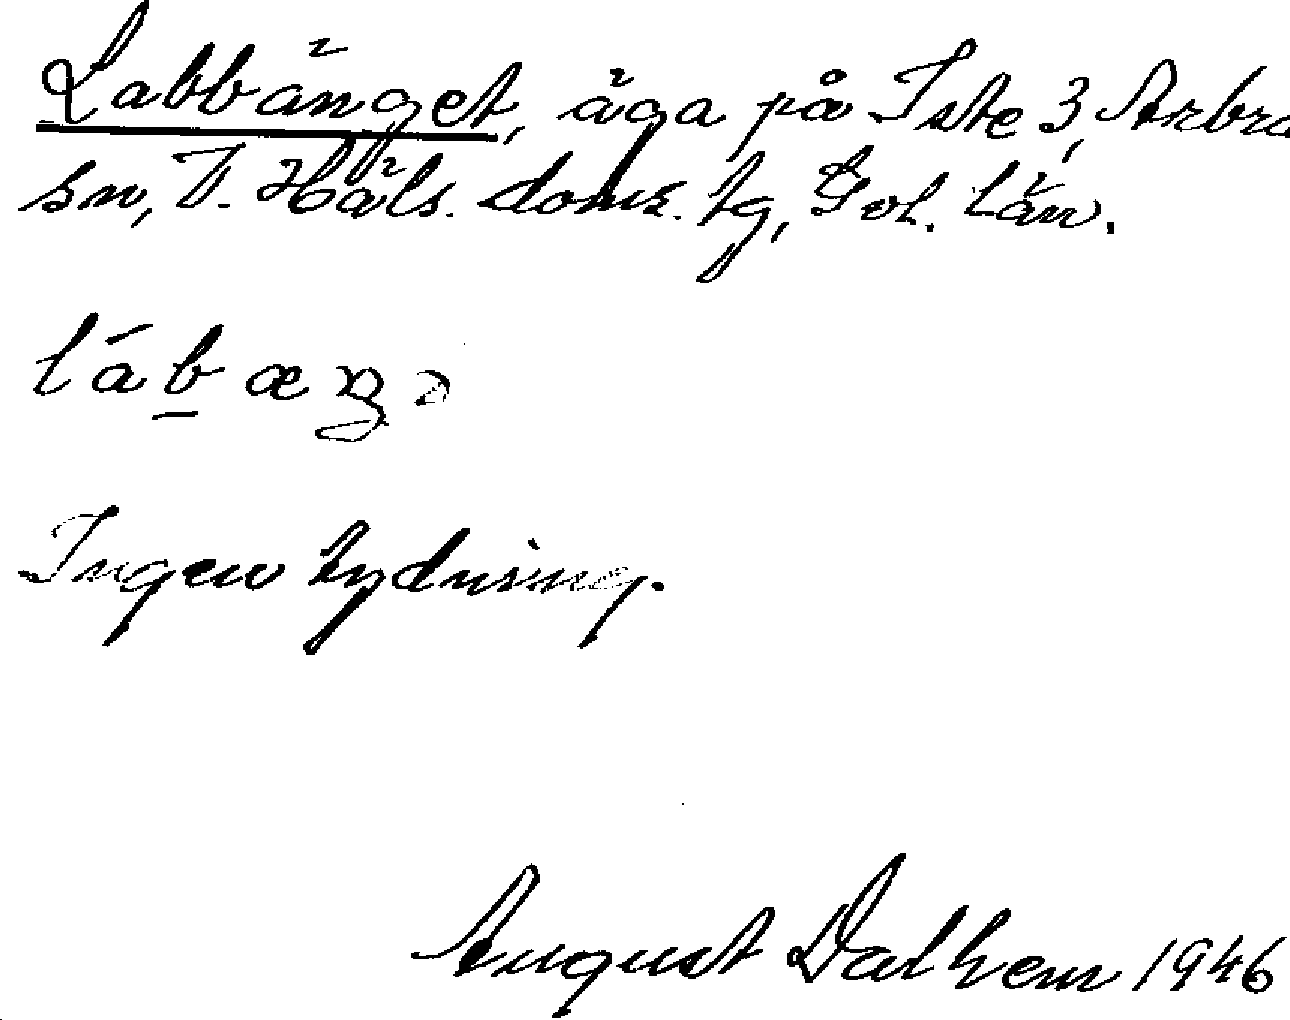 Labbänget, äga på Iste 3, Arbrå
sn, V. Häls. doms. tg, Gvl. län.
lábæŋə
Ingen tydning.
August Dalhem 1946